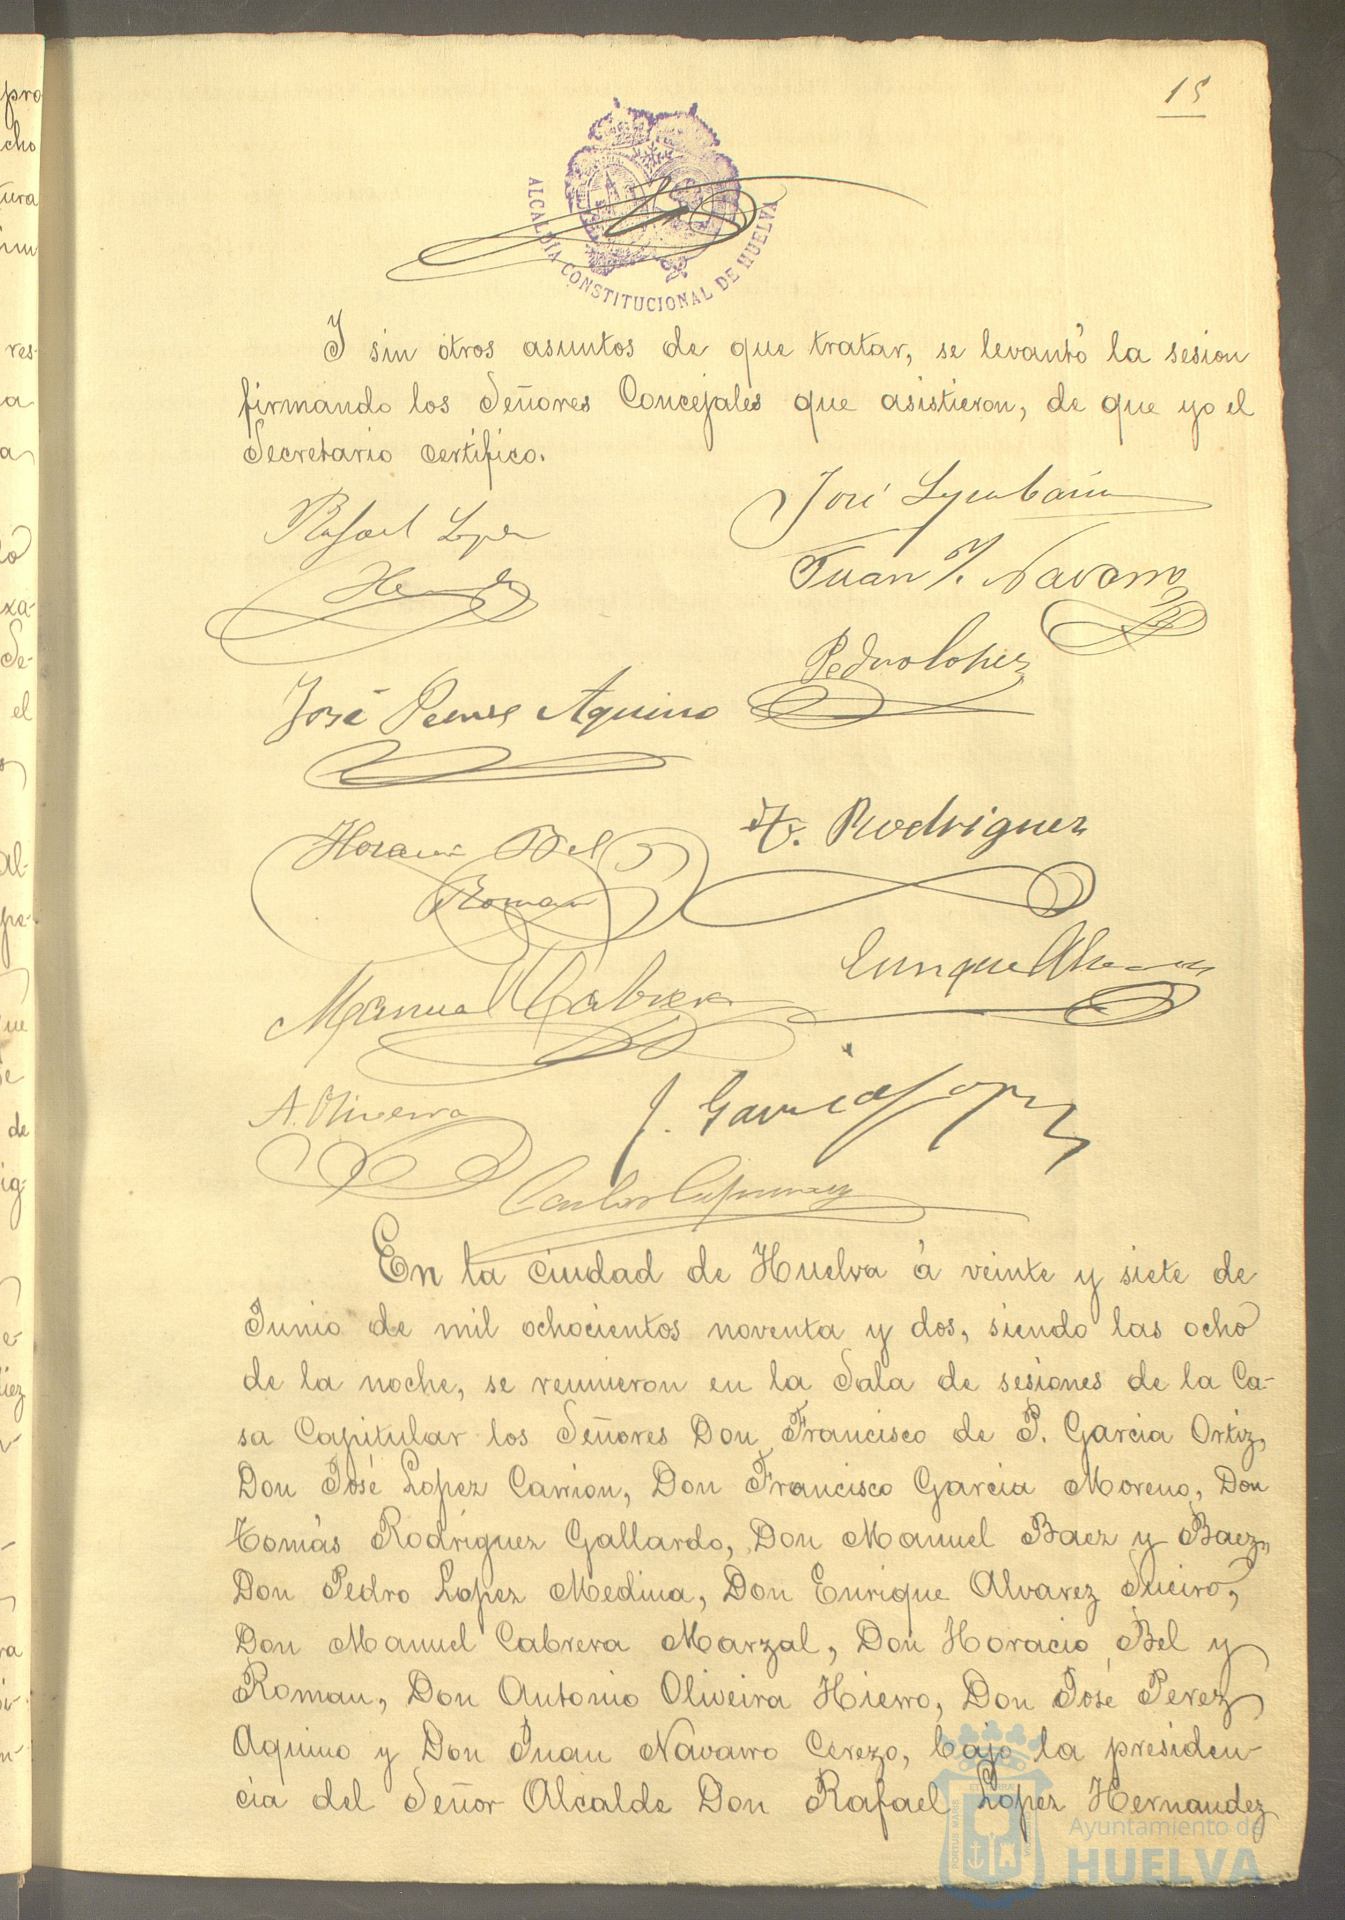 15
ALCALDÍA CONSTITUCIONAL DE HUELVA
Y sin otros asuntos de que tratar, se levantó la sesion
firmando los Señores Concejales que asistieron, de que yo el
Secretario certifico.
Rafael Lopez
José
Juan Navarro
Pedro Lopez
José Perez Aquino
Horacio Bel
Roman
Rodriguez
Enrique Alvarez
Manuel Cabrera
A. Oliveira
J. Garcia Lopez
Carlos
En la ciudad de Huelva á veinte y siete de
Junio de mil ochocientos noventa y dos, siendo las ocho
de la noche, se reunieron en la Sala de sesiones de la Ca-
sa Capitular los Señores Don Francisco de P. Garcia Ortiz,
Don José Lopez Carrion, Don Francisco Garcia Moreno, Don
Tomás Rodriguez Gallardo, Don Manuel Baez y Baez,
Don Pedro Lopez Medina, Don Enrique Alvarez Sueiro,
Don Manuel Cabrera Marzal, Don Horacio Bel y
Roman, Don Antonio Oliveira Hierro, Don José Perez
Aquino y Don Juan Navarro Cerezo, bajo la presiden-
cia del Señor Alcalde Don Rafael Lopez Hernandez
Ayuntamiento de
HUELVA